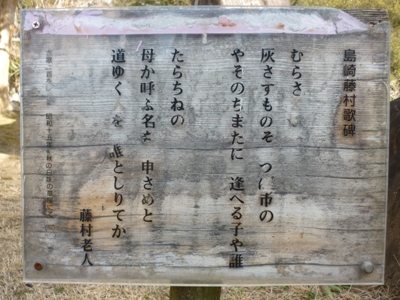 島崎藤村歌碑
むらさ
灰さすものそ つば市の
やそのちまたに 逢へる子や誰
たらちねの
母か呼ふ名を 申さめと
道ゆく人を 誰としりてか
藤村老人